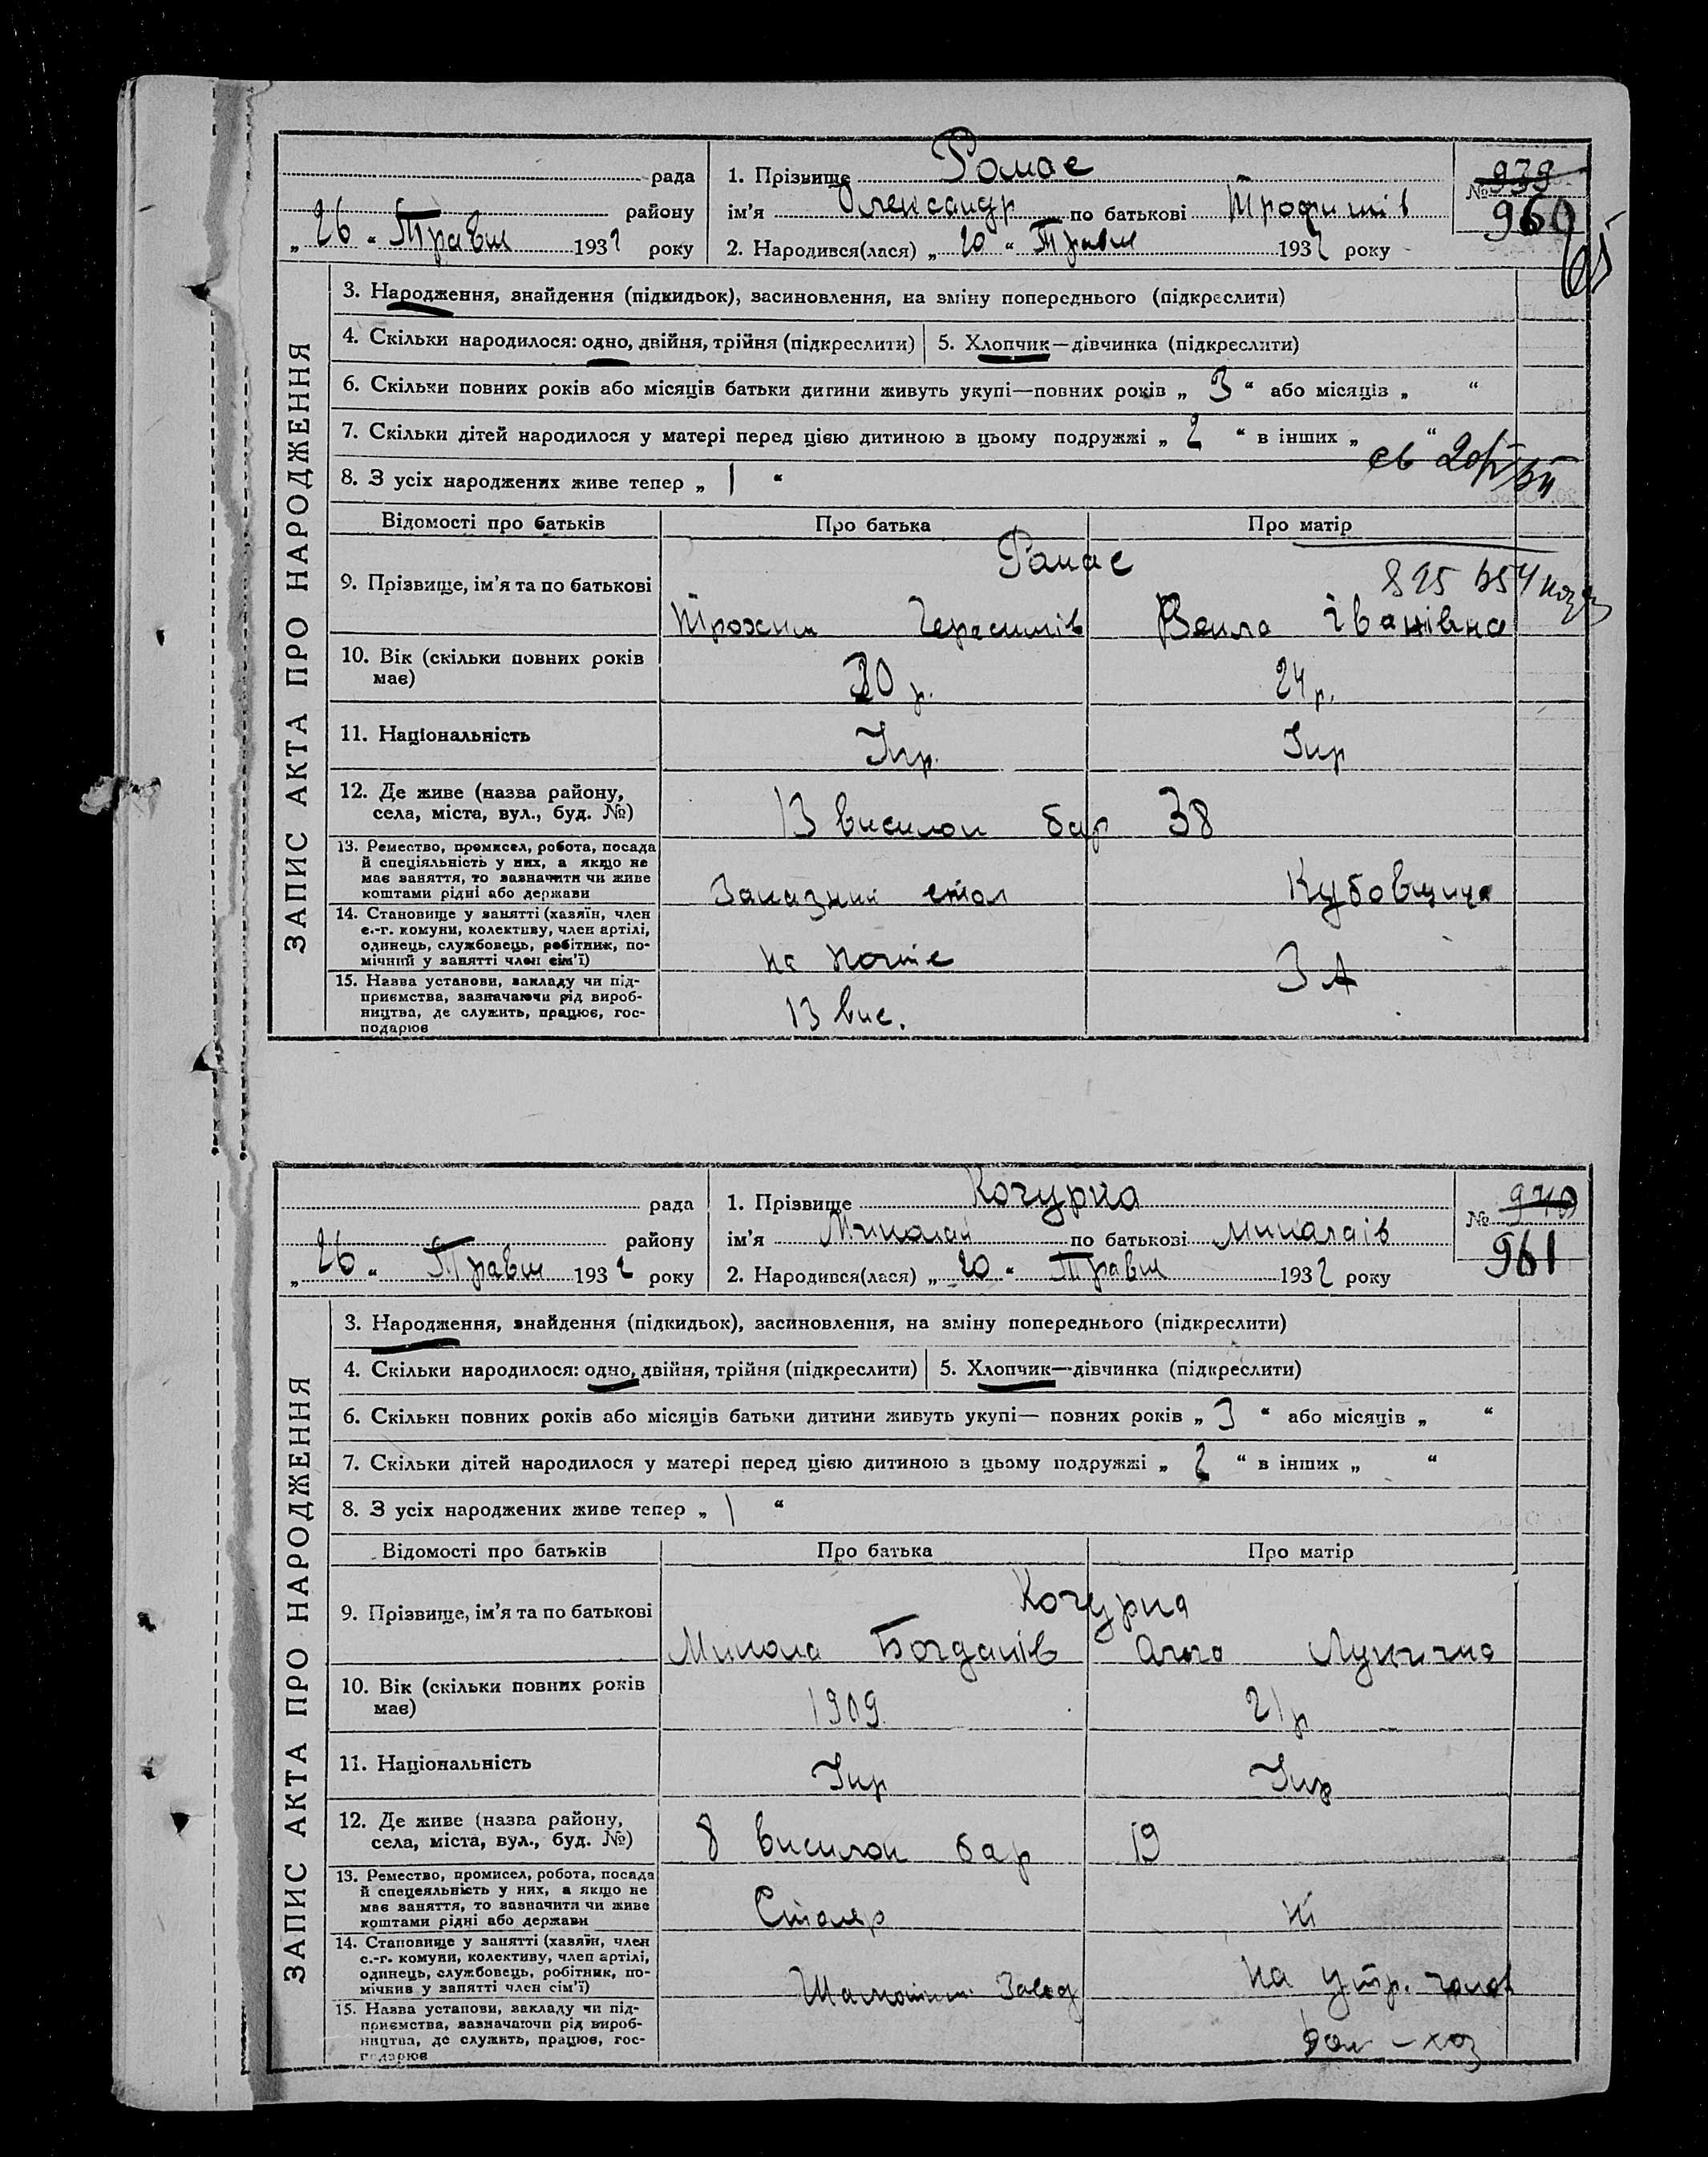 рада
1. Прізвище Ромас
№ 939
району
ім'я Олександр по батькові Трофимів
960
„ 26 “ Травня 1932 року
2. Народився(лася) „ 20 “ Травня 1932 року
ЗАПИС АКТА ПРО НАРОДЖЕННЯ
3. Народження, знайдення (підкидьок), засиновлення, на зміну попереднього (підкреслити)
4. Скільки народилося: одно, двійня, трійня (підкреслити)
5. Хлопчик—дівчинка (підкреслити)
6. Скільки повних років або місяців батьки дитини живуть укупі—повних років „ 3 “ або місяців „ “
7. Скільки дітей народилося у матері перед цією дитиною в цьому подружжі „ 2 “ в інших „ “
8. З усіх народжених живе тепер „ 1 “
Відомості про батьків
Про батька
Про матір
9. Прізвище, ім'я та по батькові
Ромас
Трохим Герасимів
Векла Іванівна
10. Вік (скільки повних років
має)
30 р.
24 р.
11. Національність
Укр.
Укр
12. Де живе (назва району,
села, міста, вул., буд. №)
13 висилок бар 38
13. Ремество, промисел, робота, посада
й спеціяльність у них, а якщо не
має заняття, то зазначити чи живе
коштами рідні або держави
Заказний стол
14. Становище у занятті (хазяїн, член
с.-г. комуни, колективу, член артілі,
одинець, службовець, робітник, по-
мічний у занятті член сім'ї)
на почте
15. Назва установи, закладу чи під-
приємства, зазначаючи рід вироб-
ництва, де служить, працює, гос-
подарює
13 вис.
рада
1. Прізвище Кочурка
№ 940
району
ім'я Миколай по батькові Миколаїв
961
„ 26 “ Травня 1932 року
2. Народився(лася) „ 20 “ Травня 1932 року
ЗАПИС АКТА ПРО НАРОДЖЕННЯ
3. Народження, знайдення (підкидьок), засиновлення, на зміну попереднього (підкреслити)
4. Скільки народилося: одно, двійня, трійня (підкреслити)
5. Хлопчик—дівчинка (підкреслити)
6. Скільки повних років або місяців батьки дитини живуть укупі— повних років „ 3 “ або місяців „ “
7. Скільки дітей народилося у матері перед цією дитиною в цьому подружжі „ 2 “ в інших „ “
8. З усіх народжених живе тепер „ 1 “
Відомості про батьків
Про батька
Про матір
9. Прізвище, ім'я та по батькові
Кочурка
Микола Богданів
10. Вік (скільки повних років
має)
1909
21 р
11. Національність
Укр
Укр
12. Де живе (назва району,
села, міста, вул., буд. №)
8 висилок бар 19
13. Ремество, промисел, робота, посада
й спецеяльність у них, а якщо не
має заняття, то зазначити чи живе
коштами рідні або держави
Столяр
ні
14. Становище у занятті (хазяїн, член
с.-г. комуни, колективу, член артілі,
одинець, службовець, робітник, по-
мічний у занятті член сім'ї)
Завод
на утр. чолов
15. Назва установи, закладу чи під-
приємства, зазначаючи рід вироб-
ництва, де служить, працює, гос-
подарює
дом-хоз